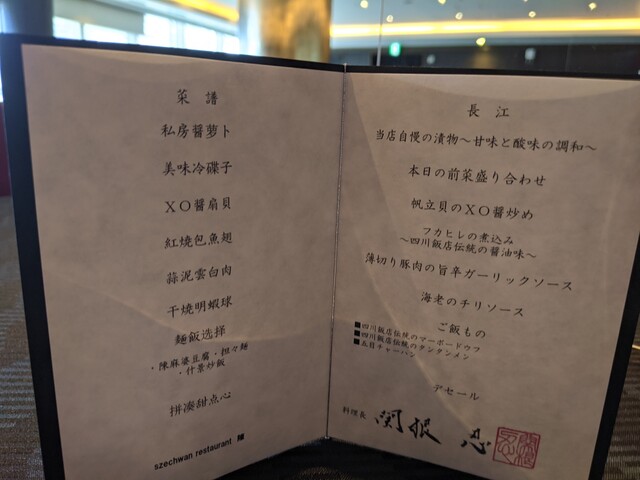 菜 譜
私房醤萝卜
美味冷碟子
ＸＯ醤扇貝
紅焼包魚翅
蒜泥雲白肉
干焼明蝦球
麺飯选择
・陳麻婆豆腐・担々麺
・什景炒飯
拼凑甜点心
szechwan restaurant 陳
長 江
当店自慢の漬物～甘味と酸味の調和～
本日の前菜盛り合わせ
帆立貝のＸＯ醤炒め
フカヒレの煮込み
～四川飯店伝統の醤油味～
薄切り豚肉の旨辛ガーリックソース
海老のチリソース
ご飯もの
■四川飯店伝統のマーボードウフ
■四川飯店伝統のタンタンメン
■五目チャーハン
デセール
料理長 関根 忍